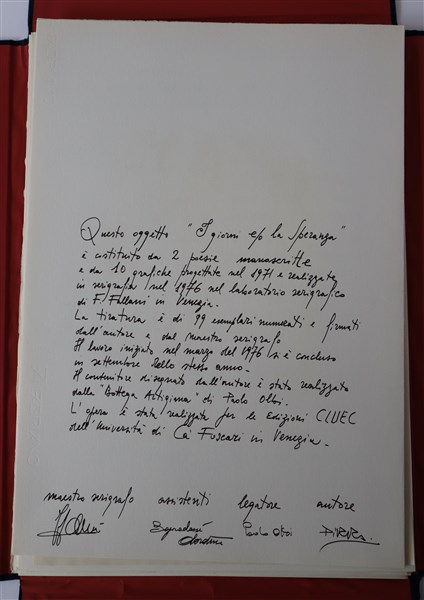 Questo oggetto "I giorni e/o la Speranza"
è costituito da 2 poesie manoscritte
e da 10 grafiche progettate nel 1971 e realizzate
in serigrafia nel 1976 nel laboratorio serigrafico
di F. Follani in Venezia.
La tiratura è di 99 esemplari numerati e firmati
dall'autore e dal maestro serigrafo
Il lavoro iniziato nel marzo del 1976 si è concluso
in settembre dello stesso anno.
Il contenitore disegnato dall'autore è stato realizzato
dalla "Bottega Artigiana" di Paolo Olbi.
L'opera è stata realizzata per le Edizioni CLUEC
dell'Università di Ca' Foscari in Venezia.
maestro serigrafo assistenti legatore autore
Paolo Olbi